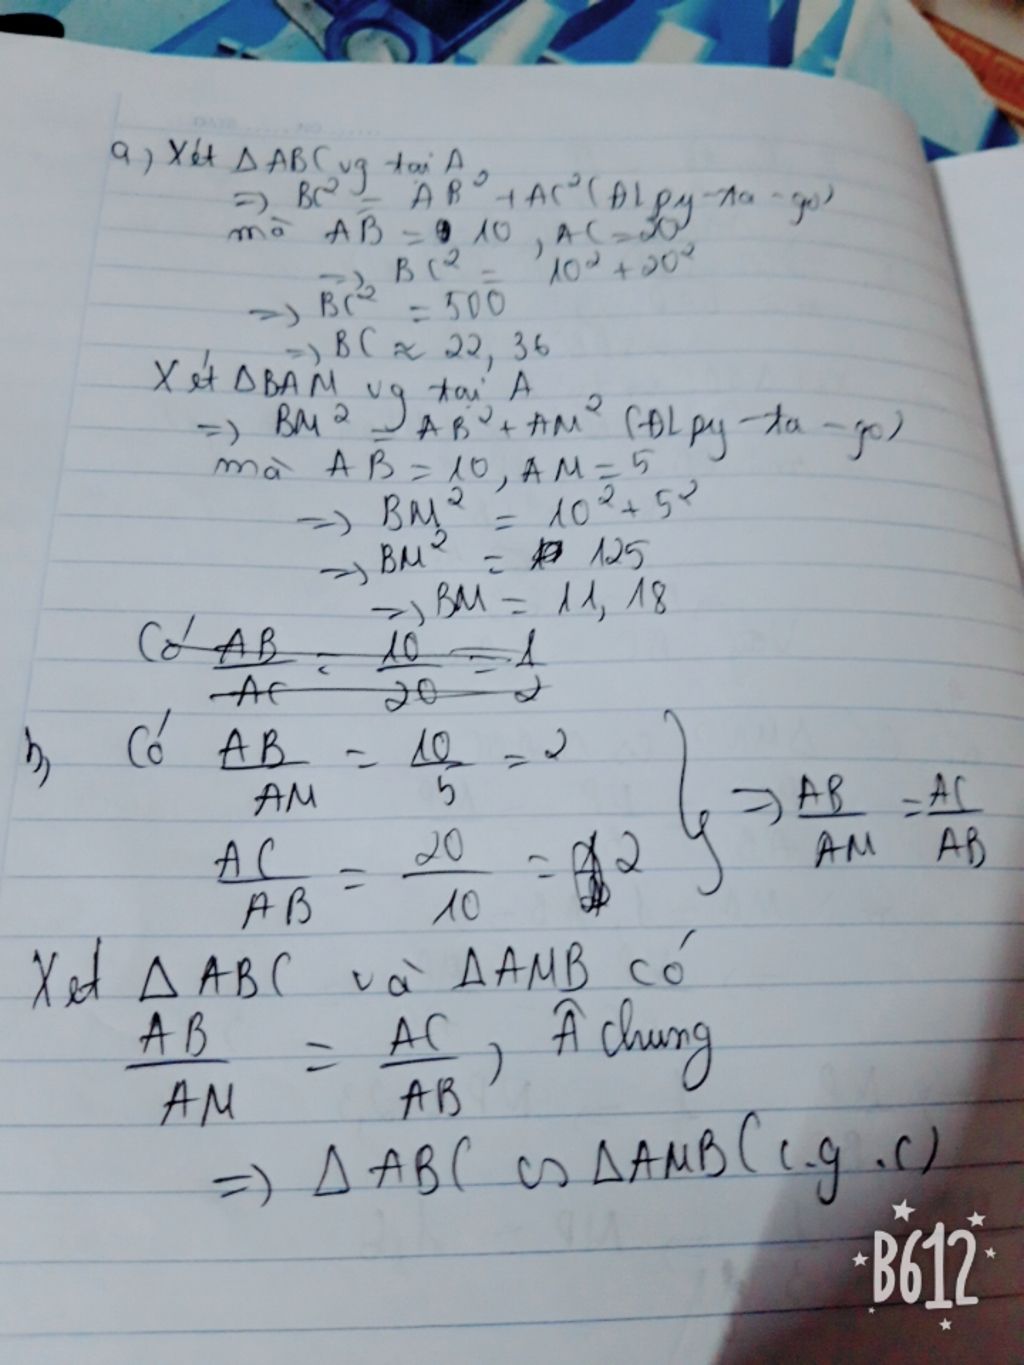 a) Xét ΔABC vg tại A
=> BC² = AB² + AC² (ĐL py-ta-go)
mà AB = 10, AC = 20
=> BC² = 10² + 20²
=> BC² = 500
=> BC ≈ 22,36
Xét ΔBAM vg tại A
=> BM² = AB² + AM² (ĐL py-ta-go)
mà AB = 10, AM = 5
=> BM² = 10² + 5²
=> BM² = 125
=> BM = 11,18
Có AB/AC = 10/20 = 1/2
b) Có AB/AM = 10/5 = 2
AC/AB = 20/10 = 2 } => AB/AM = AC/AB
Xét ΔABC và ΔAMB có
AB/AM = AC/AB, Â chung
=> ΔABC ∽ ΔAMB (c.g.c)
B612